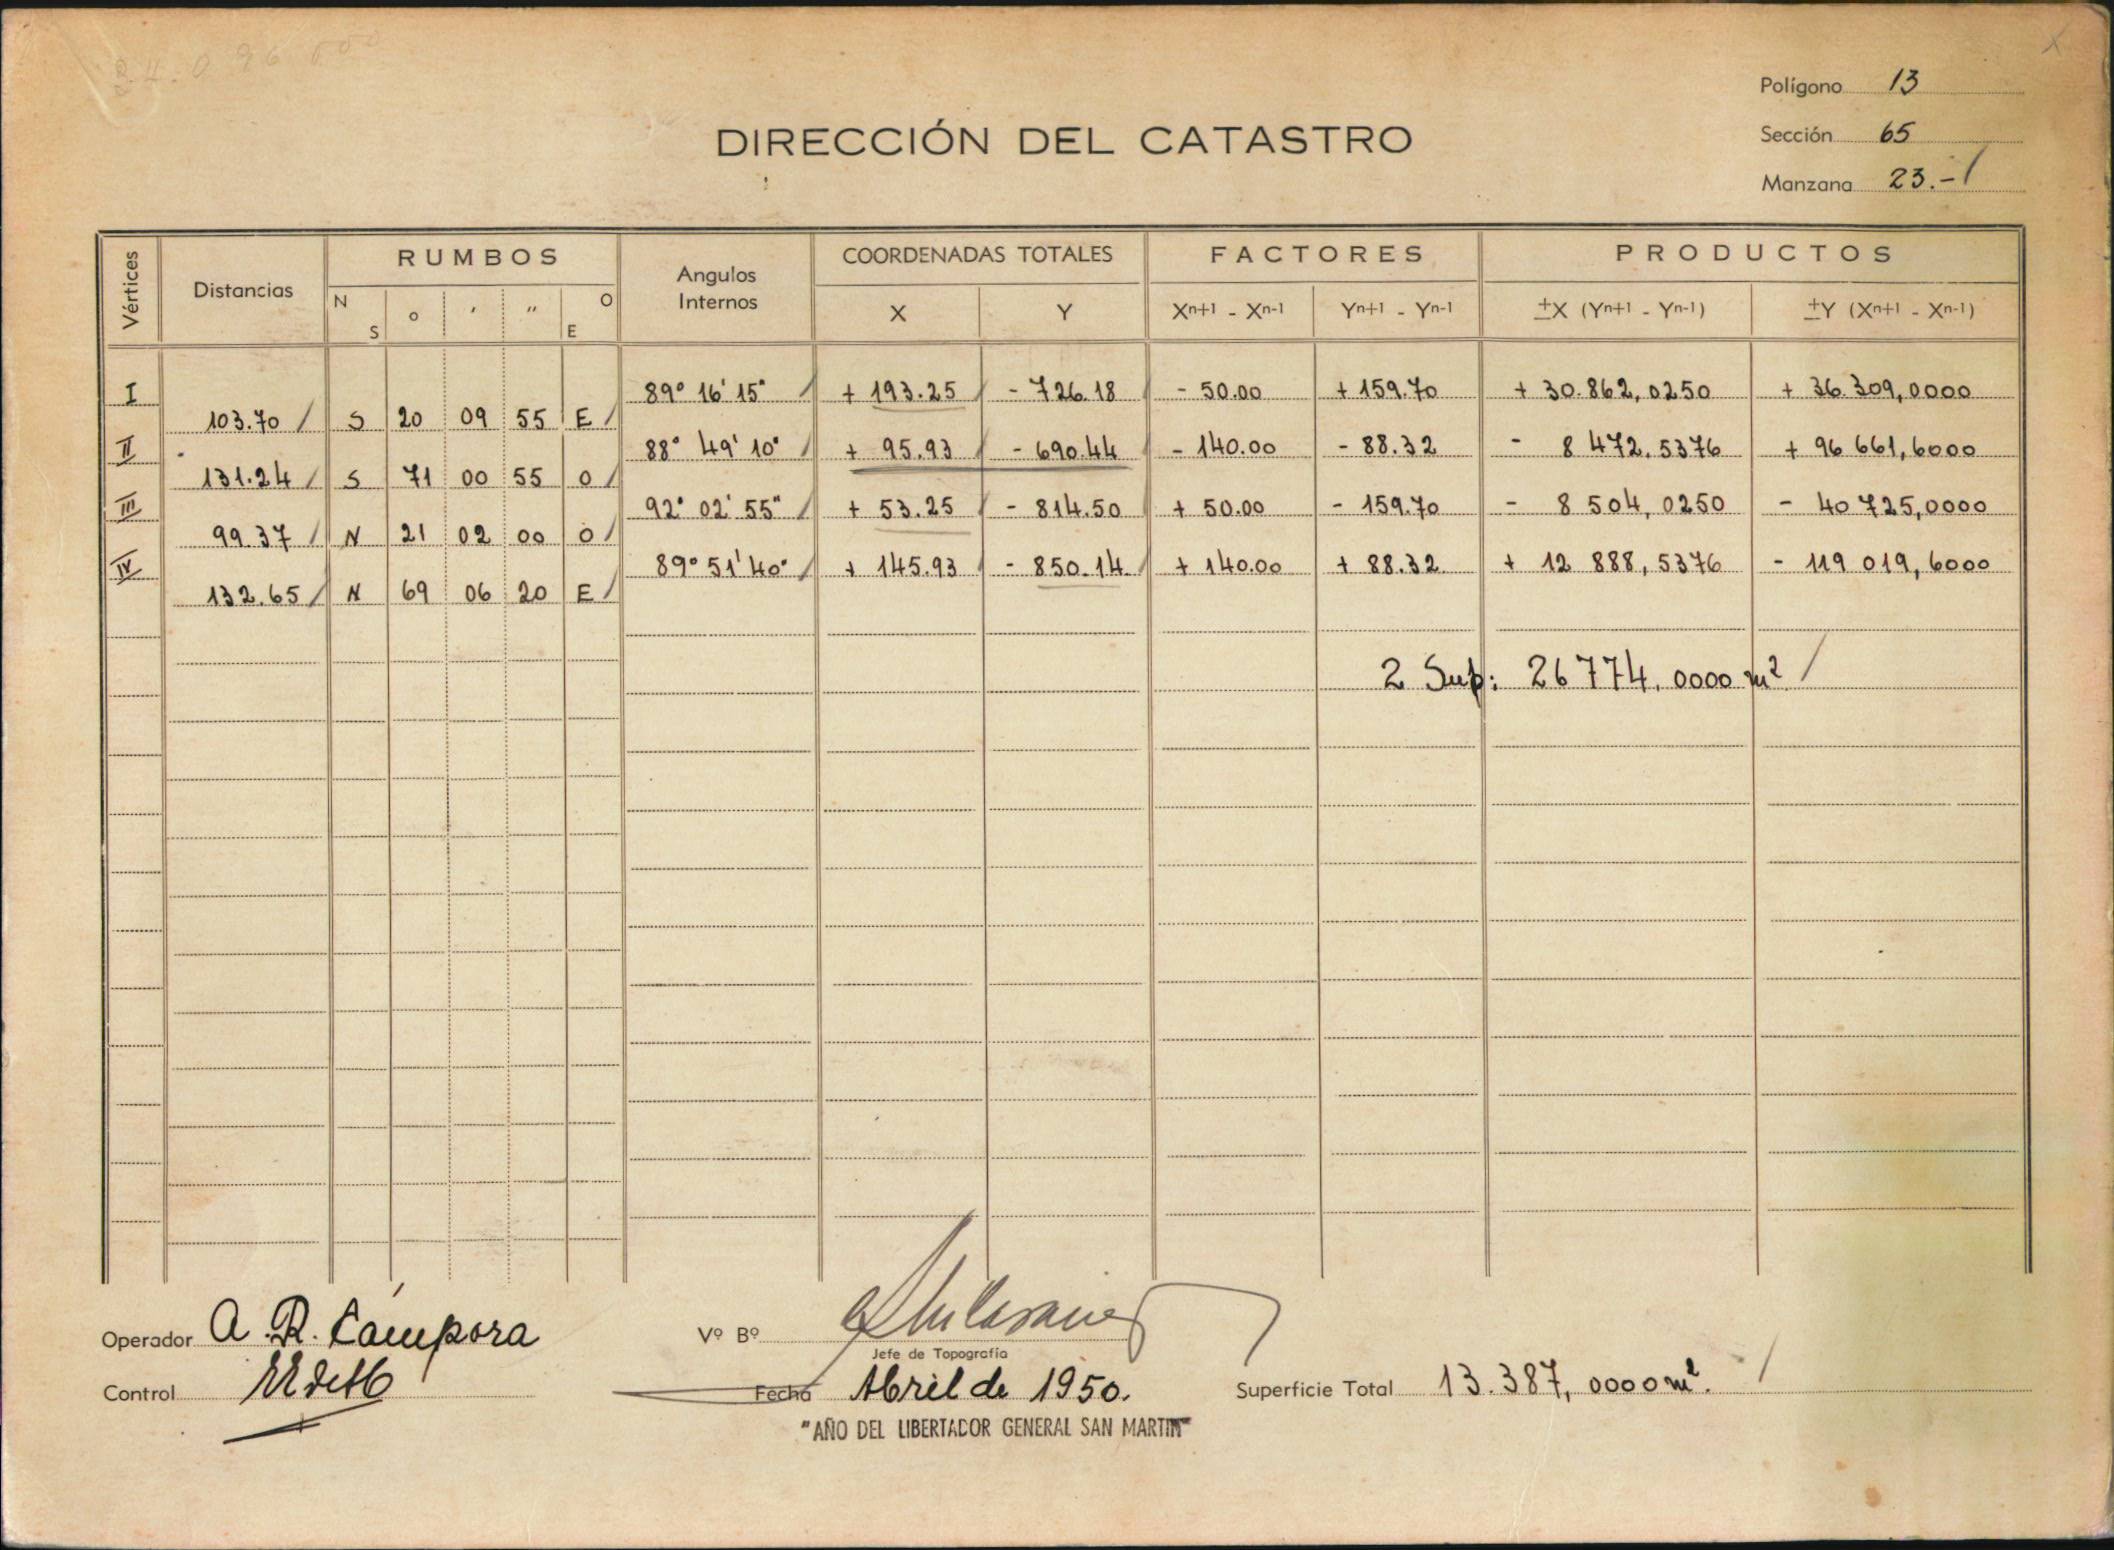 Polígono 13
DIRECCIÓN DEL CATASTRO
Sección 65
Manzana 23.-
Vértices Distancias RUMBOS Angulos Internos COORDENADAS TOTALES FACTORES PRODUCTOS
N S o ' " O E X Y Xn+1 - Xn-1 Yn+1 - Yn-1 ±X (Yn+1 - Yn-1) ±Y (Xn+1 - Xn-1)
I 89° 16' 15" + 193.25 - 726.18 - 50.00 + 159.70 + 30.862,0250 + 36.309,0000
103.70 S 20 09 55 E
II 88° 49' 10" + 95.93 - 690.44 - 140.00 - 88.32 - 8 472.5376 + 96 661,6000
131.24 S 71 00 55 O
III 92° 02' 55" + 53.25 - 814.50 + 50.00 - 159.70 - 8 504,0250 - 40 725,0000
99.37 N 21 02 00 O
IV 89° 51' 40" + 145.93 - 850.14 + 140.00 + 88.32 + 12 888,5376 - 119 019,6000
132.65 N 69 06 20 E
2 Sup: 26 774.0000 m²
Operador A. R. Cámpora
Vº Bº
Jefe de Topografía
Control
Fecha Abril de 1950.
Superficie Total 13.387,0000 m².
"AÑO DEL LIBERTADOR GENERAL SAN MARTIN"